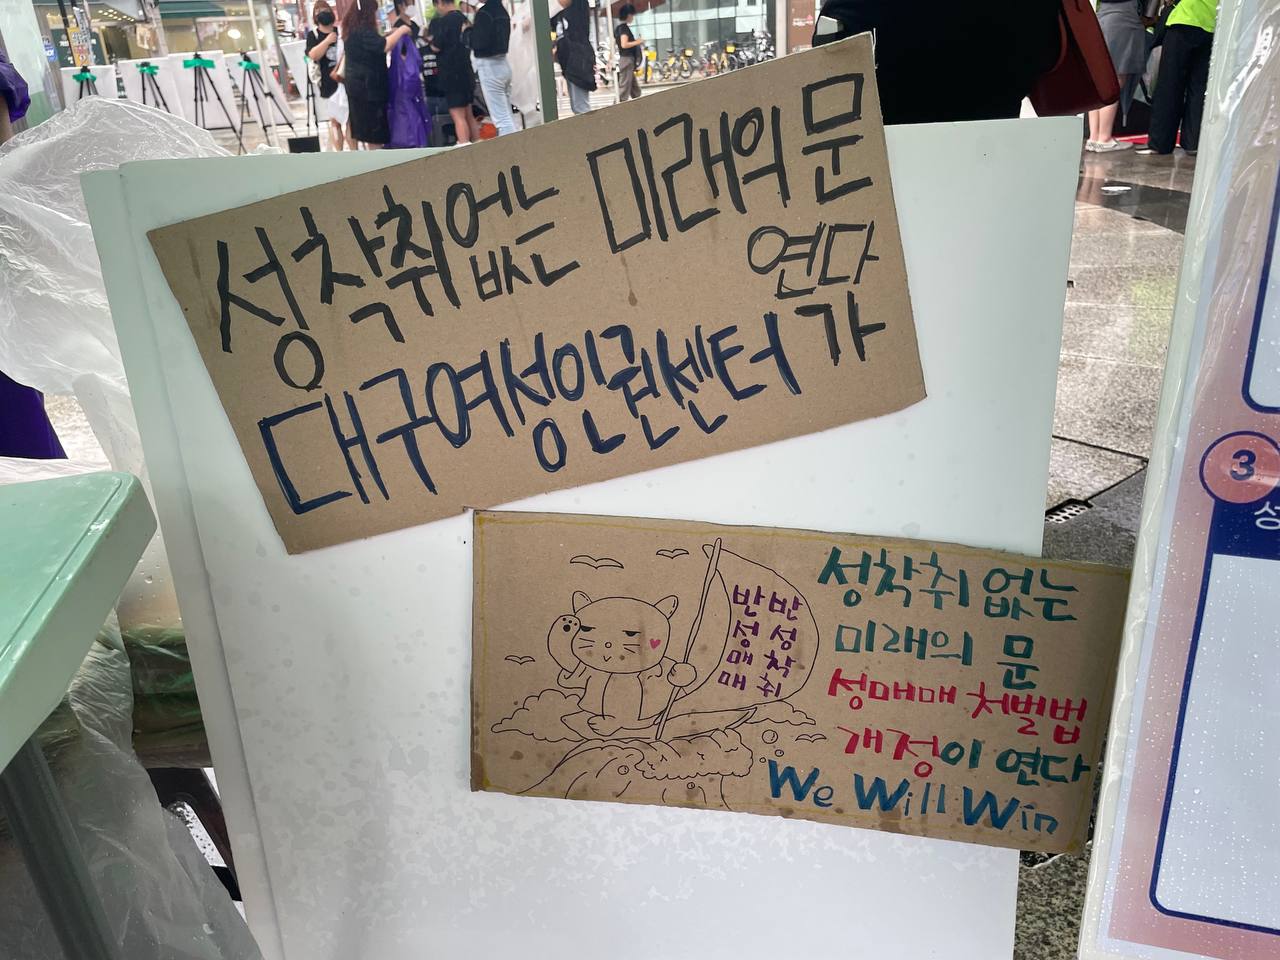 성착취없는 미래의 문
연다
대구여성인권센터가
반성매매
반성착취
성착취 없는
미래의 문
성매매 처벌법
개정이 연다
We Will Win
3
성